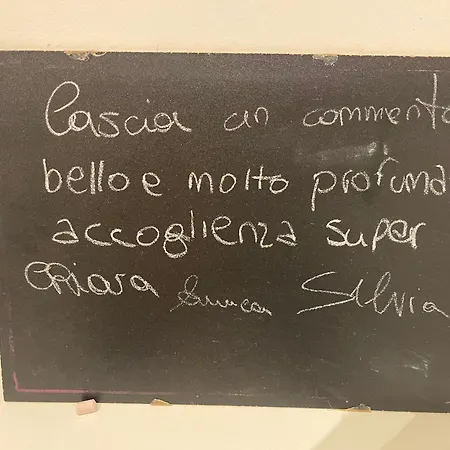 Lascia un commento
bello e molto profuma
accoglienza super
CHiara Silvia